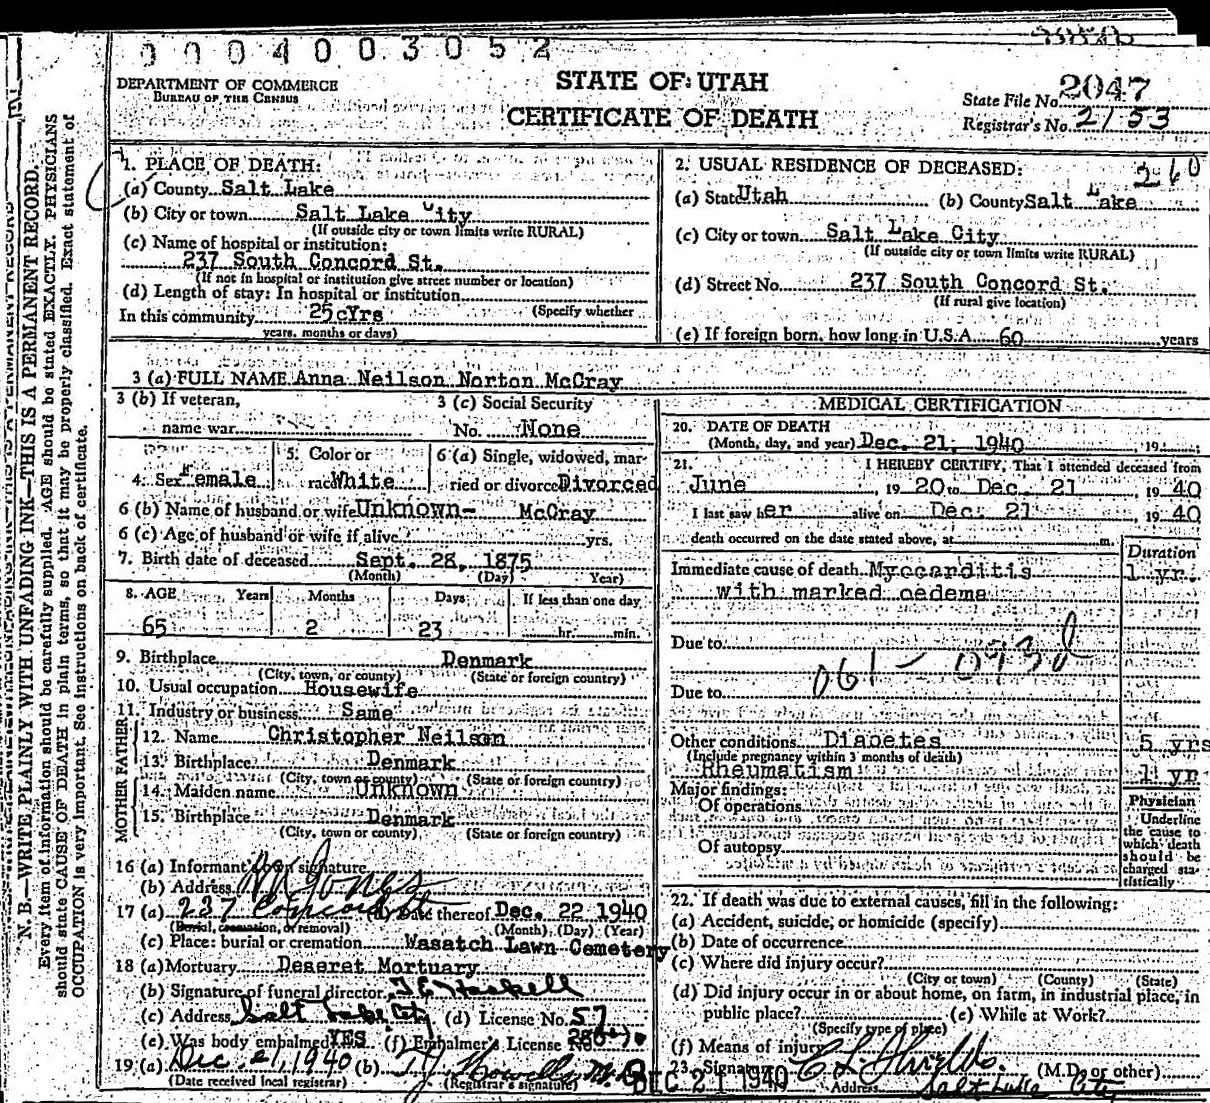 0004003052
DEPARTMENT OF COMMERCE
BUREAU OF THE CENSUS
STATE OF UTAH
CERTIFICATE OF DEATH
State File No. 2047
Registrar's No. 2153
N. B.—WRITE PLAINLY WITH UNFADING INK—THIS IS A PERMANENT RECORD.
Every item of information should be carefully supplied. AGE should be stated EXACTLY. PHYSICIANS
should state CAUSE OF DEATH in plain terms, so that it may be properly classified. Exact statement of
OCCUPATION is very important. See instructions on back of certificate.
1. PLACE OF DEATH:
(a) County Salt Lake
(b) City or town Salt Lake City
(If outside city or town limits write RURAL)
(c) Name of hospital or institution:
237 South Concord St.
(If not in hospital or institution give street number or location)
(d) Length of stay: In hospital or institution
In this community 25 Yrs (Specify whether
years, months or days)
2. USUAL RESIDENCE OF DECEASED: 260
(a) State Utah (b) County Salt Lake
(c) City or town Salt Lake City
(If outside city or town limits write RURAL)
(d) Street No. 237 South Concord St.
(If rural give location)
(e) If foreign born, how long in U.S.A. 60 years
3 (a) FULL NAME Anna Neilson Norton McCray
3 (b) If veteran, 3 (c) Social Security
name war No. None
4. Sex Female 5. Color or race White 6 (a) Single, widowed, married or divorced Divorced
6 (b) Name of husband or wife Unknown- McCray
6 (c) Age of husband or wife if alive yrs.
7. Birth date of deceased Sept. 28, 1875
(Month) (Day) Year)
8. AGE Years Months Days If less than one day
65 2 23 hr. min.
9. Birthplace Denmark
(City, town, or county) (State or foreign country)
10. Usual occupation Housewife
11. Industry or business Same
FATHER
12. Name Christopher Neilson
13. Birthplace Denmark
(City, town or county) (State or foreign country)
MOTHER
14. Maiden name Unknown
15. Birthplace Denmark
(City, town or county) (State or foreign country)
16 (a) Informant's own signature
(b) Address
17 (a) 237 Concord (b) Date thereof Dec. 22 1940
(Burial, cremation, or removal) (Month) (Day) (Year)
(c) Place: burial or cremation Wasatch Lawn Cemetery
18 (a) Mortuary Deseret Mortuary
(b) Signature of funeral director
(c) Address Salt Lake City (d) License No. 57
(e) Was body embalmed YES (f) Embalmer's License No.
19 (a) Dec 21, 1940 (b)
(Date received local registrar) (Registrar's signature)
MEDICAL CERTIFICATION
20. DATE OF DEATH
(Month, day, and year) Dec. 21, 1940 19
21. I HEREBY CERTIFY, That I attended deceased from
June, 19 20 to Dec. 21, 19 40
I last saw her alive on Dec. 21, 19 40
death occurred on the date stated above, at m.
Duration
Immediate cause of death Myocarditis 1 yr.
with marked oedema
Due to
061 - 093d
Due to
Other conditions Diabetes 5 yrs
(Include pregnancy within 3 months of death)
Rheumatism 1 yr
Major findings:
Of operations
Of autopsy
Physician
Underline
the cause to
which death
should be
charged sta-
tistically
22. If death was due to external causes, fill in the following:
(a) Accident, suicide, or homicide (specify)
(b) Date of occurrence
(c) Where did injury occur?
(City or town) (County) (State)
(d) Did injury occur in or about home, on farm, in industrial place, in
public place? (e) While at Work?
(Specify type of place)
(f) Means of injury
23. Signature C L Shields. (M.D. or other)
DEC 21 1940 Address Salt Lake City